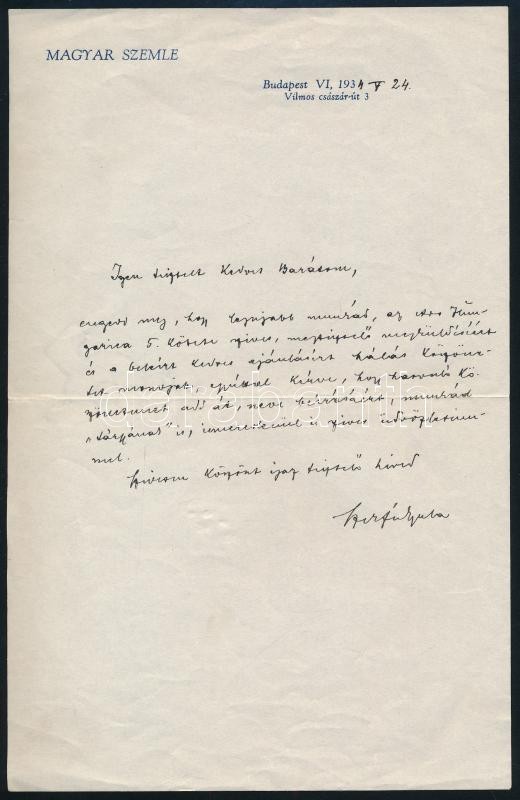 MAGYAR SZEMLE
Budapest VI, 1934 V 24.
Vilmos császár-út 3
Igen tisztelt Kedves Barátom,
engedd meg, hogy legújabb munkád, az Ars Hun-
garica 5. kötete szives, megtisztelő megküldéséért
és a beleírt kedves ajánlásért hálás köszöne-
tet mondjak, egyúttal kérve, hogy hasonló kö-
szönetemet add át, neve beírásáért, munkád
is, ismeretlenül is szives üdvözletem-
mel.
Szívesen köszönt igaz tisztelő híved
Szekfű Gyula